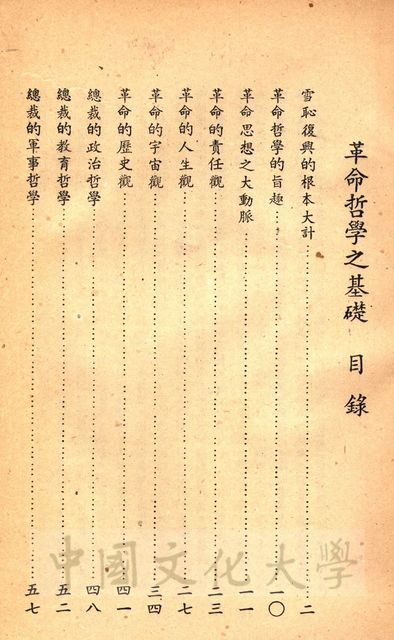 革命哲學之基礎 目錄
雪恥復興的根本大計……二
革命哲學的旨趣……一〇
革命思想之大動脈……一一
革命的責任觀……二三
革命的人生觀……二七
革命的宇宙觀……三四
革命的歷史觀……四一
總裁的政治哲學……四八
總裁的教育哲學……五二
總裁的軍事哲學……五七
中國文化大學